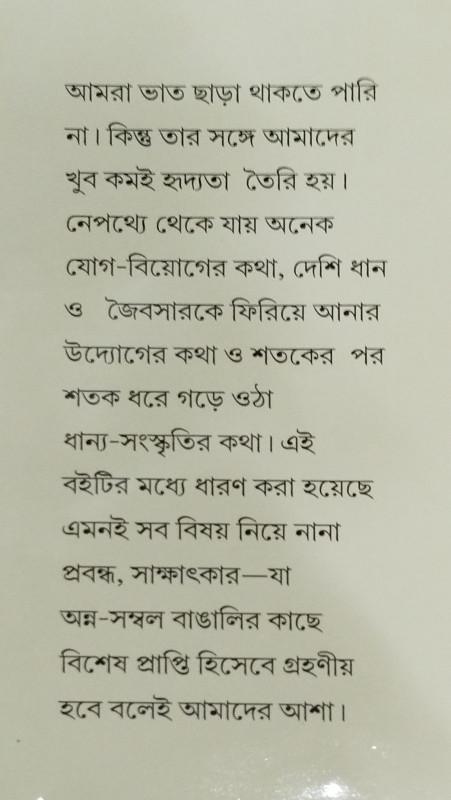 আমরা ভাত ছাড়া থাকতে পারি
না। কিন্তু তার সঙ্গে আমাদের
খুব কমই হৃদ্যতা তৈরি হয়।
নেপথ্যে থেকে যায় অনেক
যোগ-বিয়োগের কথা, দেশি ধান
ও জৈবসারকে ফিরিয়ে আনার
উদ্যোগের কথা ও শতকের পর
শতক ধরে গড়ে ওঠা
ধান্য-সংস্কৃতির কথা। এই
বইটির মধ্যে ধারণ করা হয়েছে
এমনই সব বিষয় নিয়ে নানা
প্রবন্ধ, সাক্ষাৎকার—যা
অন্ন-সম্বল বাঙালির কাছে
বিশেষ প্রাপ্তি হিসেবে গ্রহণীয়
হবে বলেই আমাদের আশা।